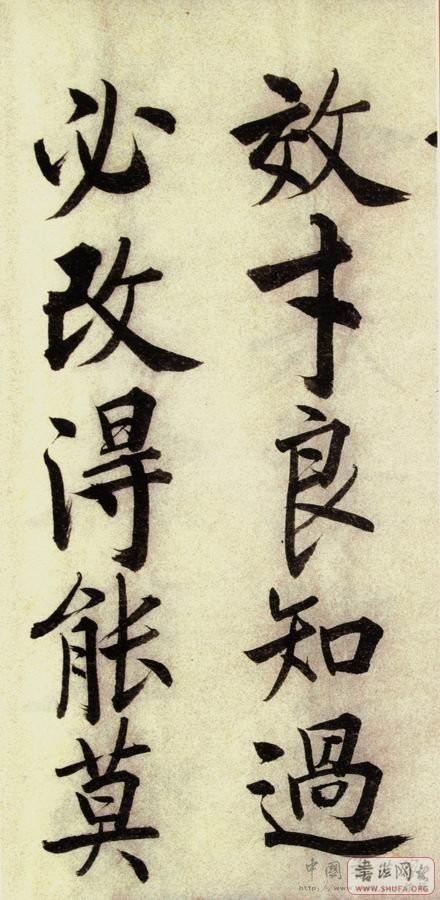 效才良知過
必改得能莫
中國書法网
http://www.SHUFA.ORG